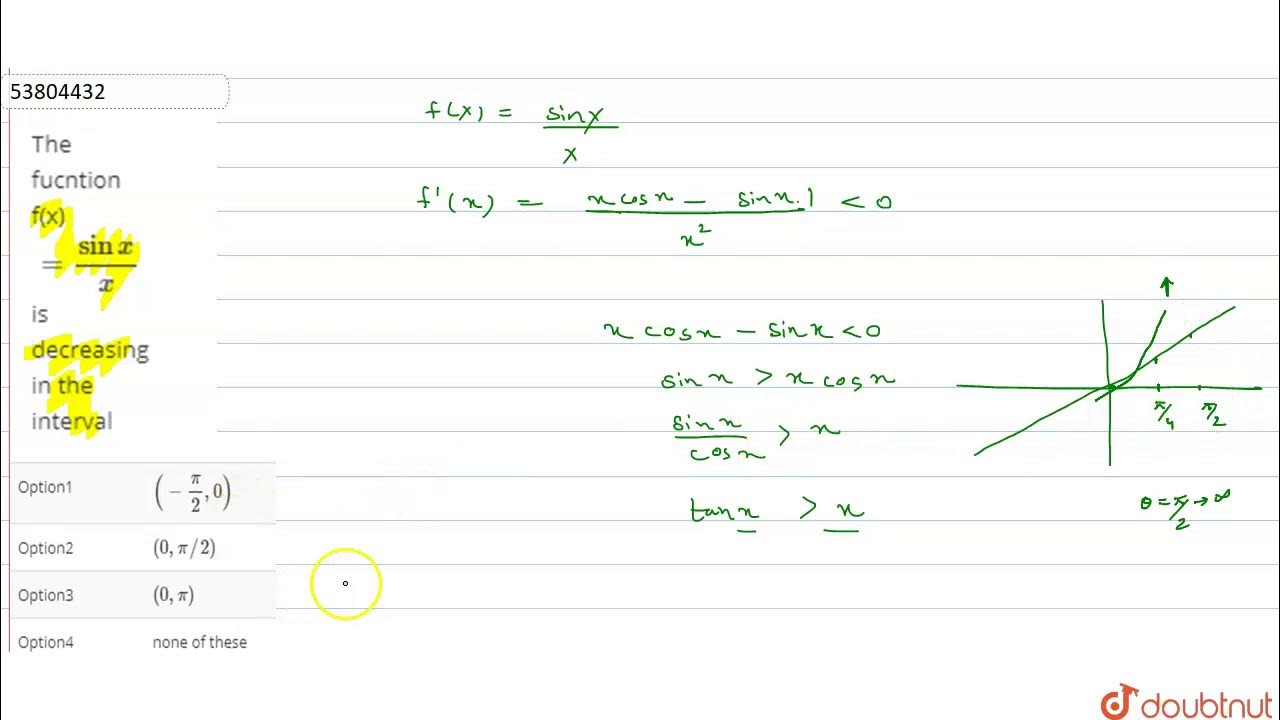 53804432
The
fucntion
f(x)
= sin x / x
is
decreasing
in the
interval
Option1 (−π/2, 0)
Option2 (0, π/2)
Option3 (0, π)
Option4 none of these
f(x) = sinx / x
f'(x) = x cosx − sinx.1 / x² < 0
x cosx − sinx < 0
sinx > x cosx
sinx / cosx > x
tanx > x
π/4 π/2
θ = π/2 → ∞
doubtnut